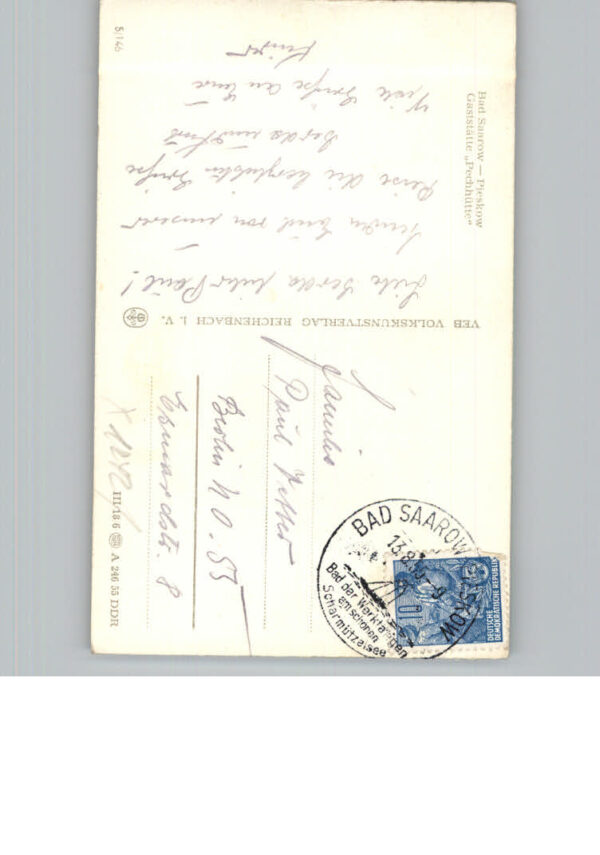 Bad Saarow — Pieskow
Gaststätte „Pechhütte"
Liebe Gerda, lieber Paul!
Senden Euch von unserer
Reise die herzlichsten Grüße
Gerda und
Viele Grüße an Eure
Kinder
5/146
VEB VOLKSKUNSTVERLAG REICHENBACH I. V.
Familie
Paul Vetter
Berlin N O. 55
Esmarchstr. 8
X 1242/
III-18 6 A 246 55 DDR
BAD SAAROW-PIESKOW
13.8.
Bad der Werktätigen
am schönen
Scharmützelsee
10
DEUTSCHE
DEMOKRATISCHE REPUBLIK